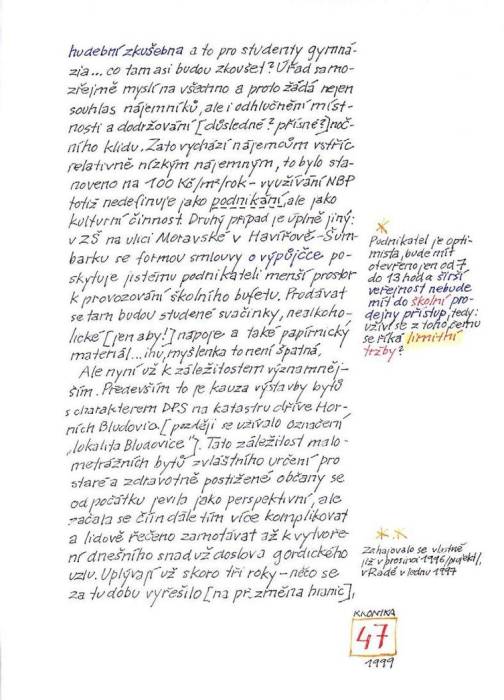 hudební zkušebna a to pro studenty gymná-
zia... co tam asi budou zkoušet? Úřad samo-
zřejmě myslí na všechno a proto žádá nejen
souhlas nájemníků, ale i odhlučnění míst-
nosti a dodržování [důsledné? přísné?] noč-
ního klidu. Zato vychází nájemcům vstříc
relativně nízkým nájemným, to bylo sta-
noveno na 100 Kč/m²/rok - využívání NBP
totiž nedefinuje jako podnikání, ale jako
kulturní činnost. Druhý případ je úplně jiný:
v ZŠ na ulici Moravské v Havířově-Šum-
barku se formou smlouvy o výpůjčce po-
skytuje jistému podnikateli menší prostor
k provozování školního bufetu. Prodávat
se tam budou studené svačinky, nealkoho-
lické [jen aby!] nápoje a také papírnický
materiál... ihu, myšlenka to není špatná.
Ale nyní už k záležitostem významněj-
ším. Především to je kauza výstavby bytů
s charakterem DPS na katastru dříve Hor-
ních Bludovic [později se užívalo označení
„lokalita Bludovice"]. Tato záležitost malo-
metrážních bytů zvláštního určení pro
staré a zdravotně postižené občany se
od počátku jevila jako perspektivní, ale
začala se čím dále tím více komplikovat
a lidově řečeno zamotávat až k vytvoře-
ní dnešního snad už doslova gordického
uzlu. Uplývají už skoro tři roky - něco se
za tu dobu vyřešilo [na př. změna hranic],
*
Podnikatel je opti-
mista, bude mít
otevřeno jen od 7
do 13 hod a širší
veřejnost nebude
mít do školní pro-
dejny přístup, tedy:
uživí se z toho, čemu
se říká limitní
tržby?
**
Zahajovalo se vlastně
již v prosinci 1996/projekt/,
v Radě v lednu 1997
KRONIKA
47
1999